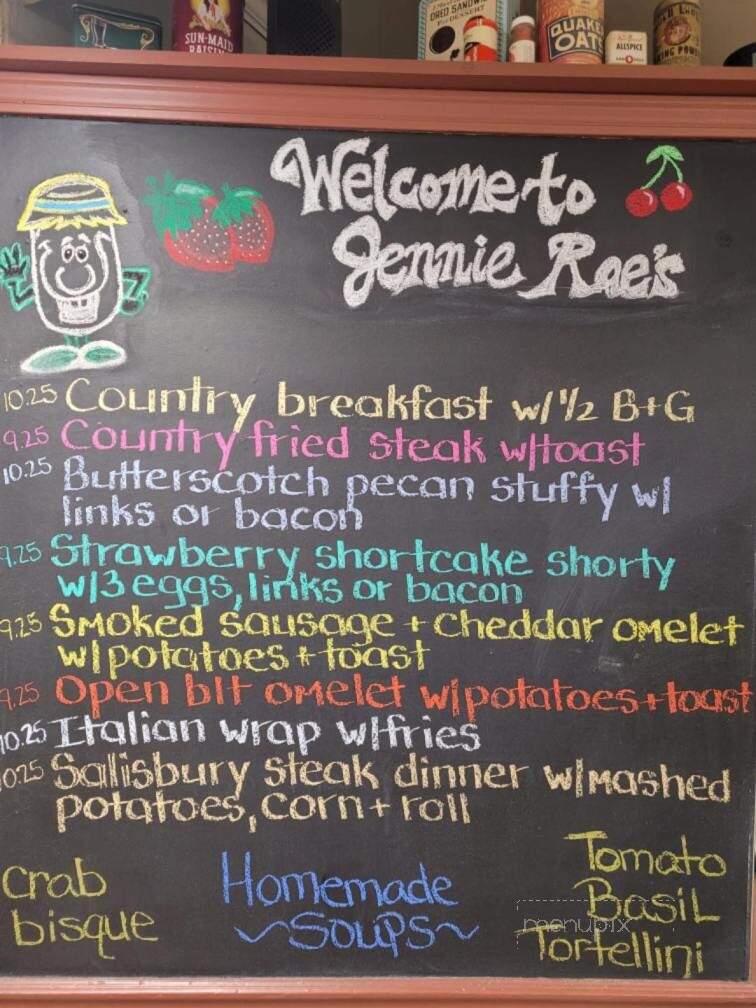 ORED SANDW
FOR DESSERT
SUN-MAID
RAISIN
QUAKER
OATS
ALLSPICE
Welcome to
Jennie Rae's
10.25 Country breakfast w/ 1/2 B+G
9.25 Country fried steak w/toast
10.25 Butterscotch pecan stuffy w/
links or bacon
9.25 Strawberry shortcake shorty
w/3 eggs, links or bacon
9.25 Smoked sausage + cheddar omelet
w/potatoes + toast
9.25 Open blt omelet w/potatoes + toast
10.25 Italian wrap w/fries
1025 Sallisbury steak dinner w/mashed
potatoes, corn + roll
Crab
bisque
Homemade
~Soups~
Tomato
Basil
Tortellini
menupix